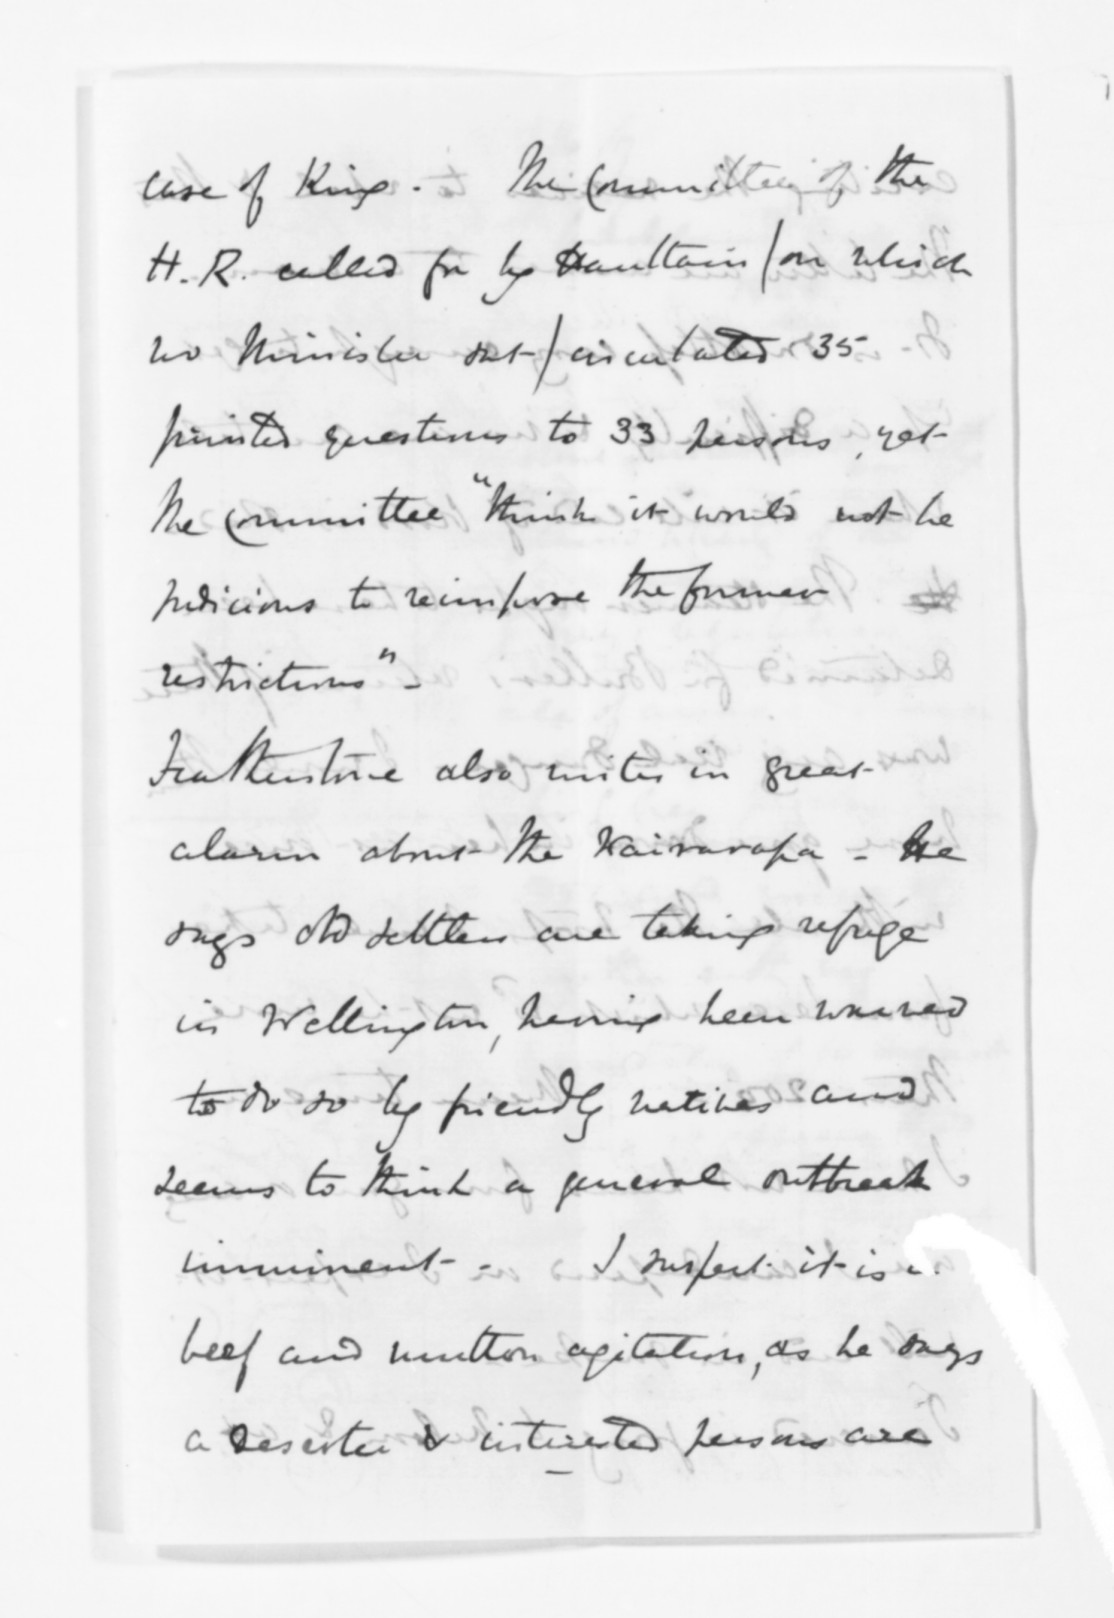 case of King. The Committee of the
H. R. called for by Haultain / on which
no Minister sat / circulated 35
printed questions to 33 persons, yet
the Committee "think it would not be
judicious to reimpose the former
restrictions" -
Featherstone also writes in great
alarm about the Wairarapa - He
says old settlers are taking refuge
in Wellington, having been warned
to do so by friendly natives and
seems to think a general outbreak
imminent - I suspect it is a
beef and mutton agitation, as he says
a deserter & interested persons are